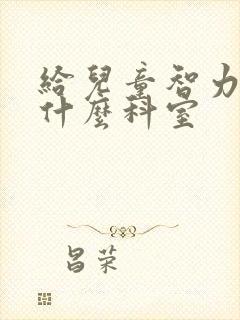 給兒童智力
什麼科室
昌荣